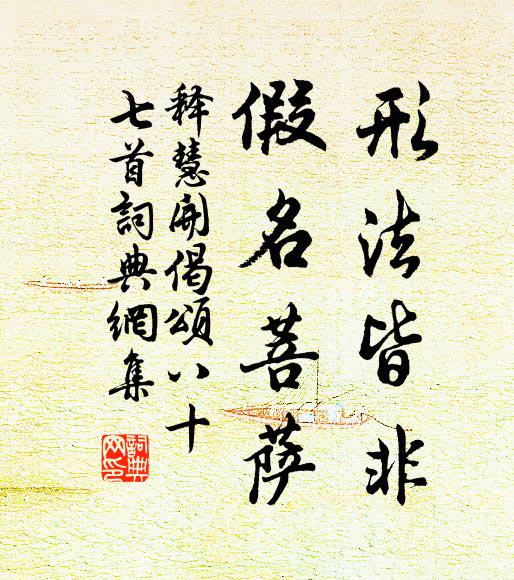 形法皆非
假名菩萨
释慧开偈頌八十
七首詞典網集
詞典
网印